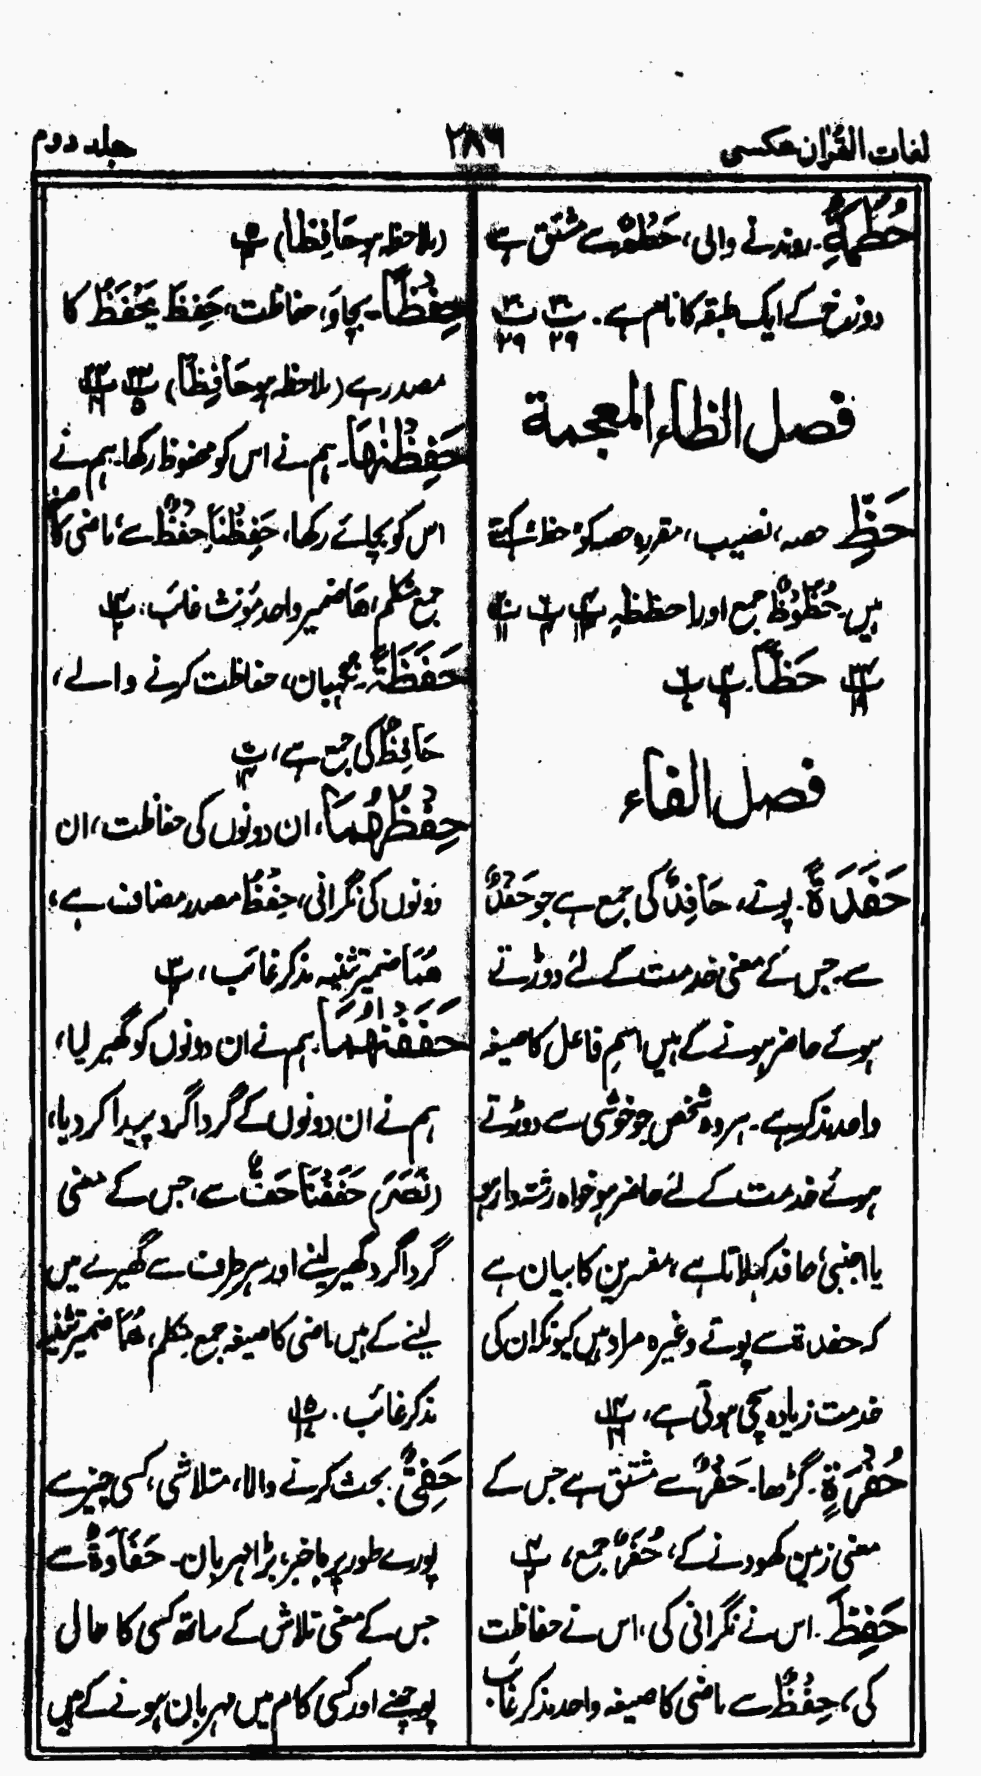 لغات القرآن عکسی
۲۸۶
جلد دوم
حُطَمَةِ۔ روندنے والی، حَطْمٌ سے مشتق ہے
دوزخ کے ایک طبقہ کا نام ہے۔ پ۳۰/۲۹ پ۳۰/۲۹
فصل الظاء المعجمة
حَظٍّ حصہ، نصیب، مقررہ حصہ کو حظ کہتے
ہیں۔ حُظُوْظٌ جمع اور احظظہ
حَظًّا۔
فصل الفاء
حَفَدَةً۔ پوتے، حَافِدٌ کی جمع ہے جو حَفْدٌ
سے جس کے معنی خدمت کے لئے دوڑتے
ہوئے حاضر ہونے کے ہیں اسمِ فاعل کا صیغہ
واحد مذکر ہے۔ ہر وہ شخص جو خوشی سے دوڑتے
ہوئے خدمت کے لئے حاضر ہو خواہ رشتہ دار ہو
یا اجنبی حافد کہلاتا ہے، مفسرین کا بیان ہے
کہ حفدة سے پوتے وغیرہ مراد ہیں کیونکہ ان کی
خدمت زیادہ سچی ہوتی ہے، پ۱۴/۱۶
حُفْرَةٍ۔ گڑھا۔ حَفْرٌ سے مشتق ہے جس کے
معنی زمین کھودنے کے، حُفَرٌ جمع، پ۴/۲
حَفِظَ۔ اس نے نگرانی کی، اس نے حفاظت
کی، حِفْظٌ سے ماضی کا صیغہ واحد مذکر غائب
(ملاحظہ ہو حَافِظًا) پ۵
حِفْظًا۔ بچاؤ، حفاظت، حَفِظَ یَحْفَظُ کا
مصدر ہے (ملاحظہ ہو حَافِظًا) پ۲۳/۵ پ۲۴/۱۶
حَفِظْنٰهَا۔ ہم نے اس کو محفوظ رکھا۔ ہم نے
اس کو بچائے رکھا، حَفِظْنَا حِفْظٌ سے ماضی کا صیغہ
جمع متکلم، ھَا ضمیر واحد مؤنث غائب، پ۱۴/۲
حَفَظَةً۔ نگہبان، حفاظت کرنے والے،
حَافِظٌ کی جمع ہے، پ۷/۱۴
حِفْظُهُمَا، ان دونوں کی حفاظت، ان
دونوں کی نگرانی، حِفْظُ مصدر مضاف ہے،
ھُمَا ضمیر تثنیہ مذکر غائب، پ۳/۲
حَفَفْنٰهُمَا۔ ہم نے ان دونوں کو گھیر لیا،
ہم نے ان دونوں کے گرداگرد پیدا کر دیا،
(نَصَرَ) حَفَفْنَا حَفٌّ سے، جس کے معنی
گرداگرد گھیر لینے اور ہر طرف سے گھیرے میں
لینے کے ہیں ماضی کا صیغہ جمع متکلم، ھُمَا ضمیر تثنیہ
مذکر غائب۔ پ۱۵/۱۷
حَفِیٌّ۔ بحث کرنے والا، متلاشی، کسی چیز سے
پورے طور پر باخبر، بڑا مہربان۔ حَفَاوَةٌ سے
جس کے معنی تلاش کے ساتھ کسی کا حال
پوچھنے اور کسی کام میں مہربان ہونے کے ہیں